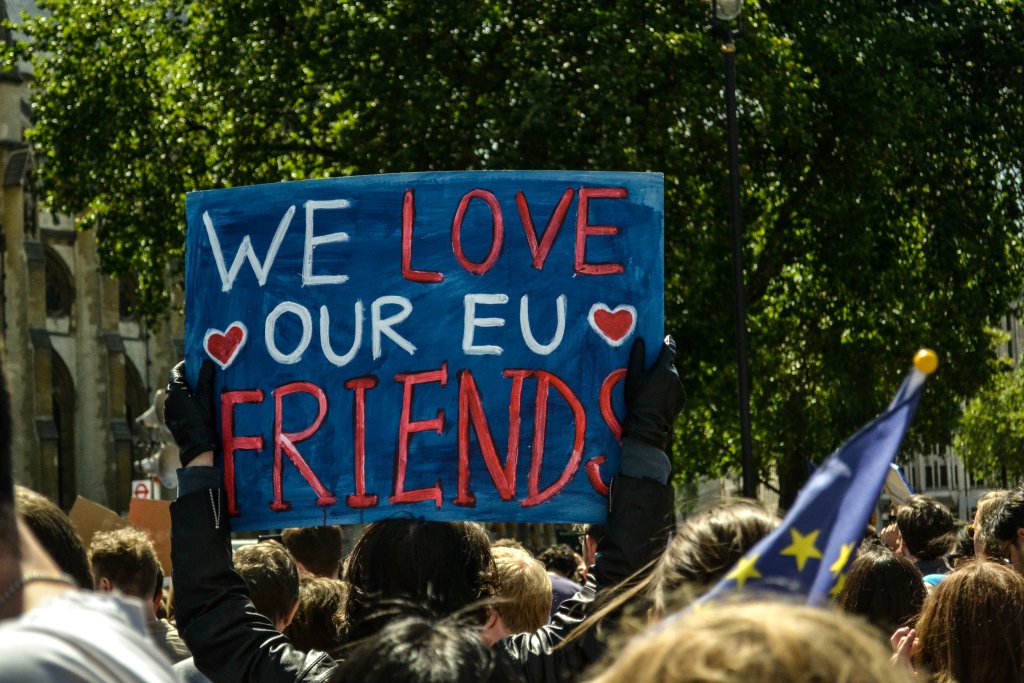 WE LOVE
OUR EU
FRIENDS